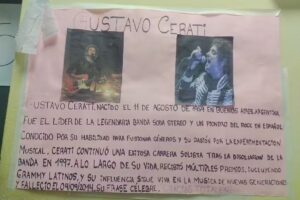 GUSTAVO CERATI
GUSTAVO CERATI, NACIDO EL 11 DE AGOSTO DE 1959 EN BUENOS AIRES, ARGENTINA,
FUE EL LÍDER DE LA LEGENDARIA BANDA SODA STEREO Y UN PIONERO DEL ROCK EN ESPAÑOL
CONOCIDO POR SU HABILIDAD PARA FUSIONAR GÉNEROS Y SU PASIÓN POR LA EXPERIMENTACIÓN
MUSICAL, CERATI CONTINUÓ UNA EXITOSA CARRERA SOLISTA TRAS LA DISOLUCIÓN DE LA
BANDA EN 1997. A LO LARGO DE SU VIDA, RECIBIÓ MÚLTIPLES PREMIOS, INCLUYENDO
GRAMMY LATINOS, Y SU INFLUENCIA SIGUE VIVA EN LA MÚSICA DE NUEVAS GENERACIONES
Y FALLECIÓ EL 04/09/2014. SU FRASE CELEBRE: GRACIAS TOTALES